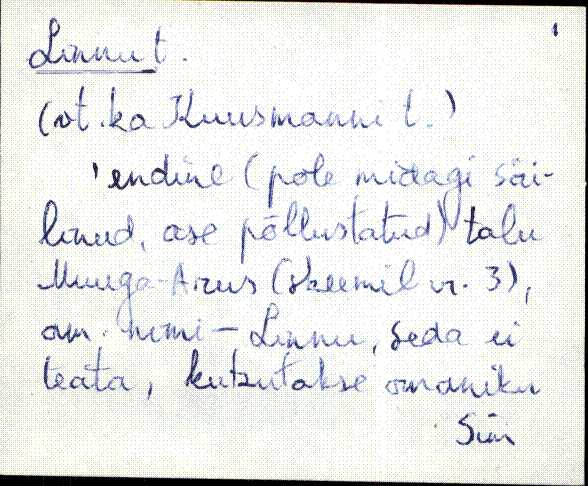 1
Linnu t.
(vt. ka Kuusmanni t.)
'endine (pole midagi säi-
linud, ase põllustatud) talu
Muuga-Arus (skeemil nr. 3),
am. nimi - Linnu, seda ei
teata, kutsutakse omaniku
Siim